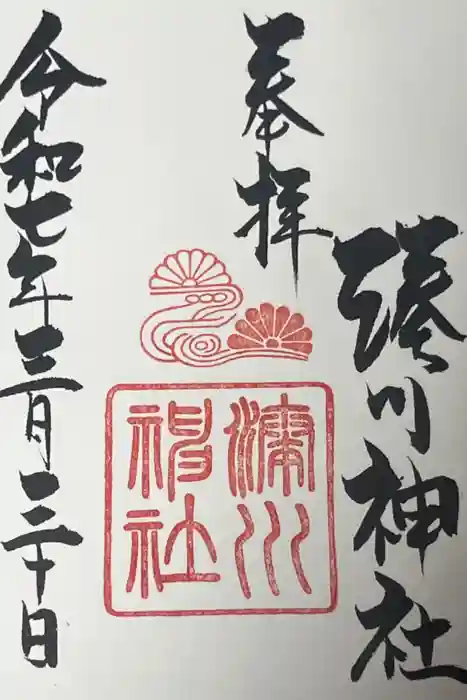 奉拝
湊川神社
湊川
神社
令和七年三月三十日